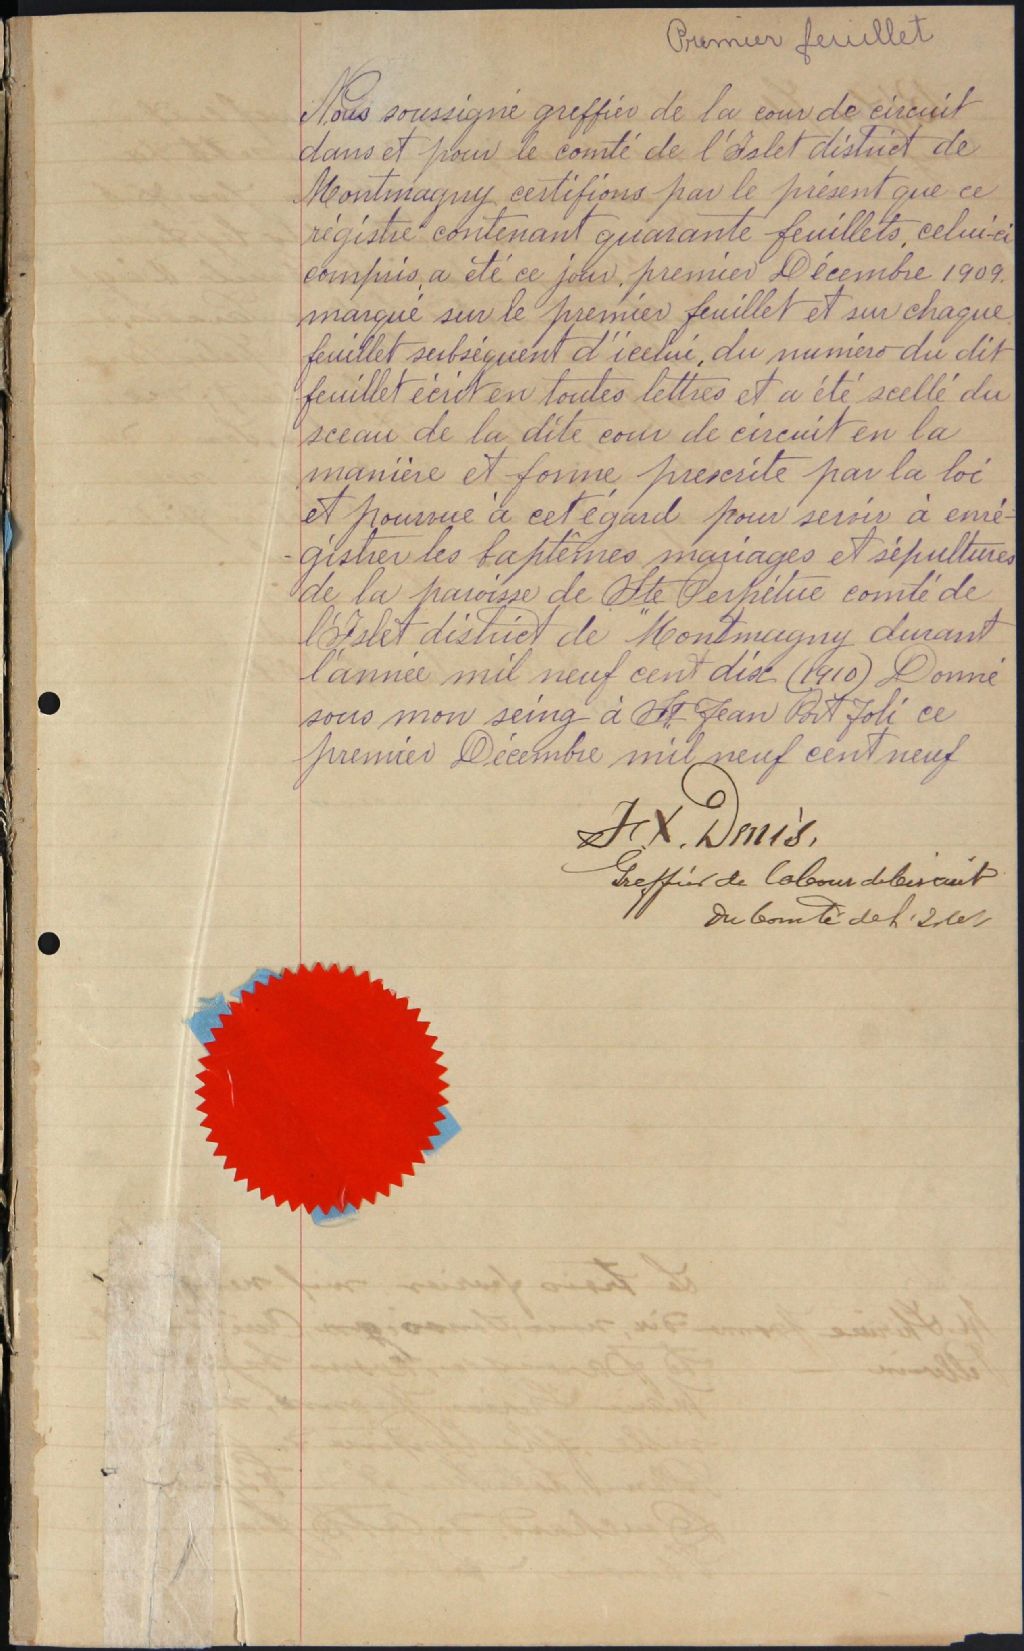 Premier feuillet
Nous soussigné greffier de la cour de circuit
dans et pour le comté de l'Islet district de
Montmagny certifions par le présent que ce
régistre contenant quarante feuillets, celui-ci
compris, a été ce jour, premier Décembre 1909.
marqué sur le premier feuillet et sur chaque
feuillet subséquent d'icelui, du numéro du dit
feuillet écrit en toutes lettres et a été scellé du
sceau de la dite cour de circuit en la
manière et forme prescrite par la loi
et pourvue à cet égard pour servir à enré-
-gistrer les baptêmes mariages et sépultures
de la paroisse de Ste Perpétue comté de
l'Islet district de Montmagny durant
l'année mil neuf cent dix (1910) Donné
sous mon seing à St Jean Port Joli ce
premier Décembre mil neuf cent neuf
F. X. Denis.
Greffier de la Cour de Circuit
du Comté de L'Islet